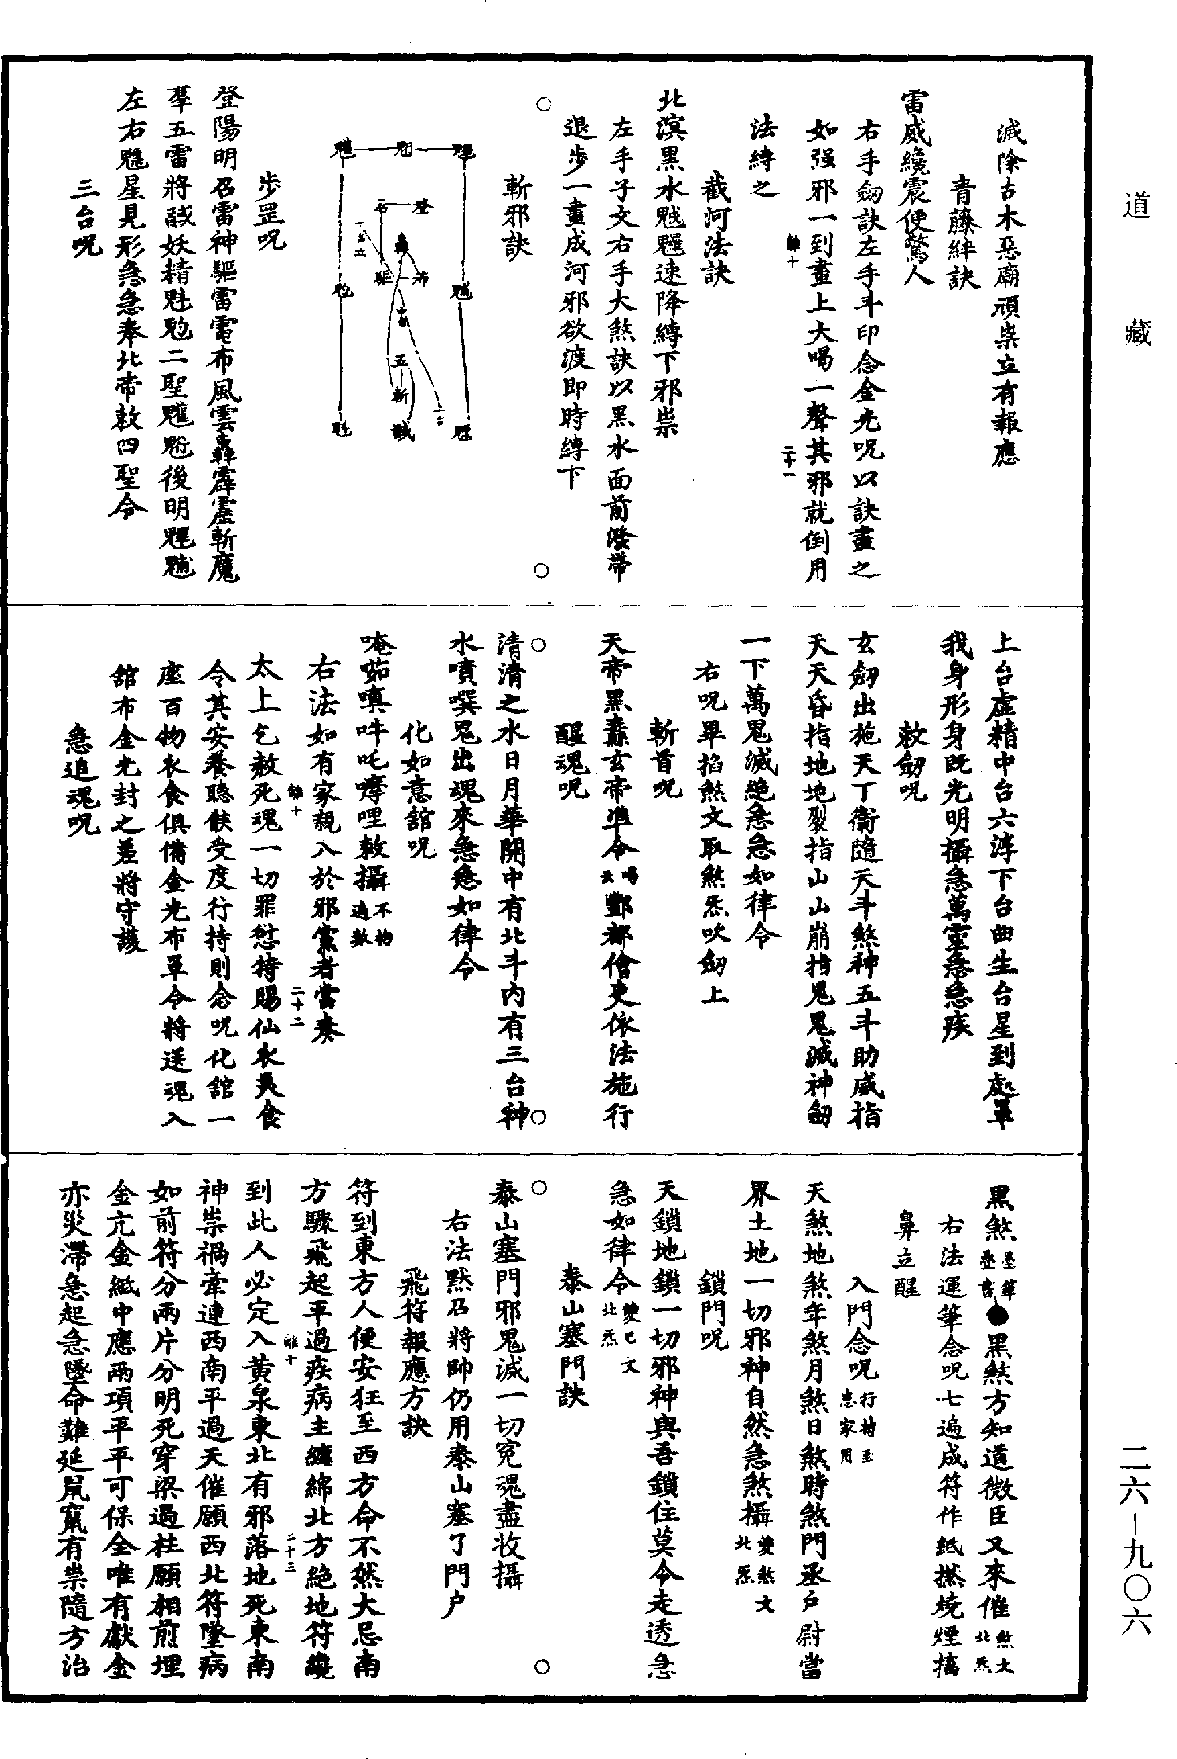 道藏
滅除古木惡廟頑祟立有報應
青藤絆訣
雷威纔震便驚人
右手劒訣左手斗印念金光呪以訣畫之
如强邪一到畫上大喝一聲其邪就倒用
法縛之
截河法訣
北溟黑水速降縛下邪祟
左手子文右手大煞訣以黑水面前潑帶
退步一畫成河邪欲渡即時縛下
斬邪訣
步罡呪
登陽明召雷神驅雷電布風雲轟霹靂斬魔
羣五雷將馘妖精魁魓二聖後明
左右星見形急急奉北帝敕四聖令
三台呪
上台虛精中台六淳下台曲生台星到處罩
我身形身既光明攝急萬靈急急疾
敕劒呪
玄劒出施天丁衛隨天斗煞神五斗助威指
天天昏指地地裂指山山崩指鬼鬼滅神劒
一下萬鬼滅絕急急如律令
右呪畢掐煞文取煞炁吹劒上
斬首呪
天帝黑纛玄帝準令喝云酆都儈吏依法施行
醒魂呪
清清之水日月華開中有北斗內有三台神
水噴噀鬼出魂來急急如律令
化如意舘呪
唵哪嗔吽吒嚩哩敕攝不拘遍數
右法如有家親入於邪黨者當奏
太上乞赦死魂一切罪愆特賜仙衣美食
令其安養聽候受度行持則念呪化舘一
座百物衣食俱備金光布罩令將送魂入
舘布金光封之差將守護
急追魂呪
黑煞黑煞方知道微臣又來催煞文北炁
右法運筆念呪七遍成符作紙撚燒煙擉
鼻立醒
入門念呪行持至患家用
天煞地煞年煞月煞日煞時煞門丞戶尉當
界土地一切邪神自然急煞攝變煞文北炁
鎖門呪
天鎖地鎖一切邪神與吾鎖住莫令走透急
急如律令變巳文北炁
泰山塞門訣
泰山塞門邪鬼滅一切冤魂盡收攝
右法默召將帥仍用泰山塞了門户
飛符報應方訣
符到東方人便安狂至西方命不然大忌南
方驟飛起平過疾病主纏綿北方絕地符纔
到此人必定入黃泉東北有邪落地死東南
神祟禍牽連西南平過天催願西北符墜病
如前符分兩片分明死穿梁過柱願相前埋
金亢金紙中應兩項平平可保全唯有獻金
亦災滯急起急墜命難延鼠竄有祟隨方治
二六－九〇六